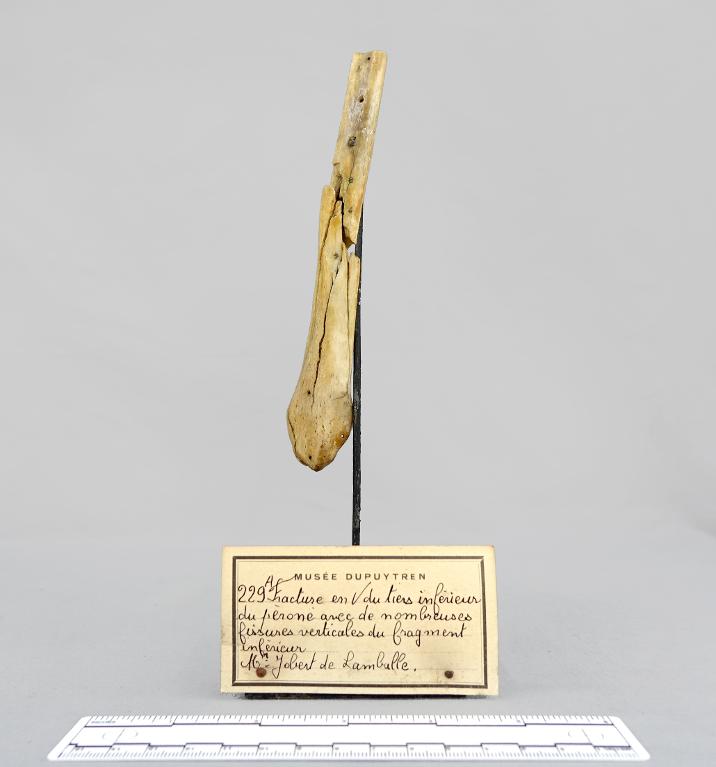 MUSÉE DUPUYTREN
229 A Fracture en V du tiers inférieur
du péroné avec de nombreuses
fissures verticales du fragment
inférieur
Mr. Jobert de Lamballe.